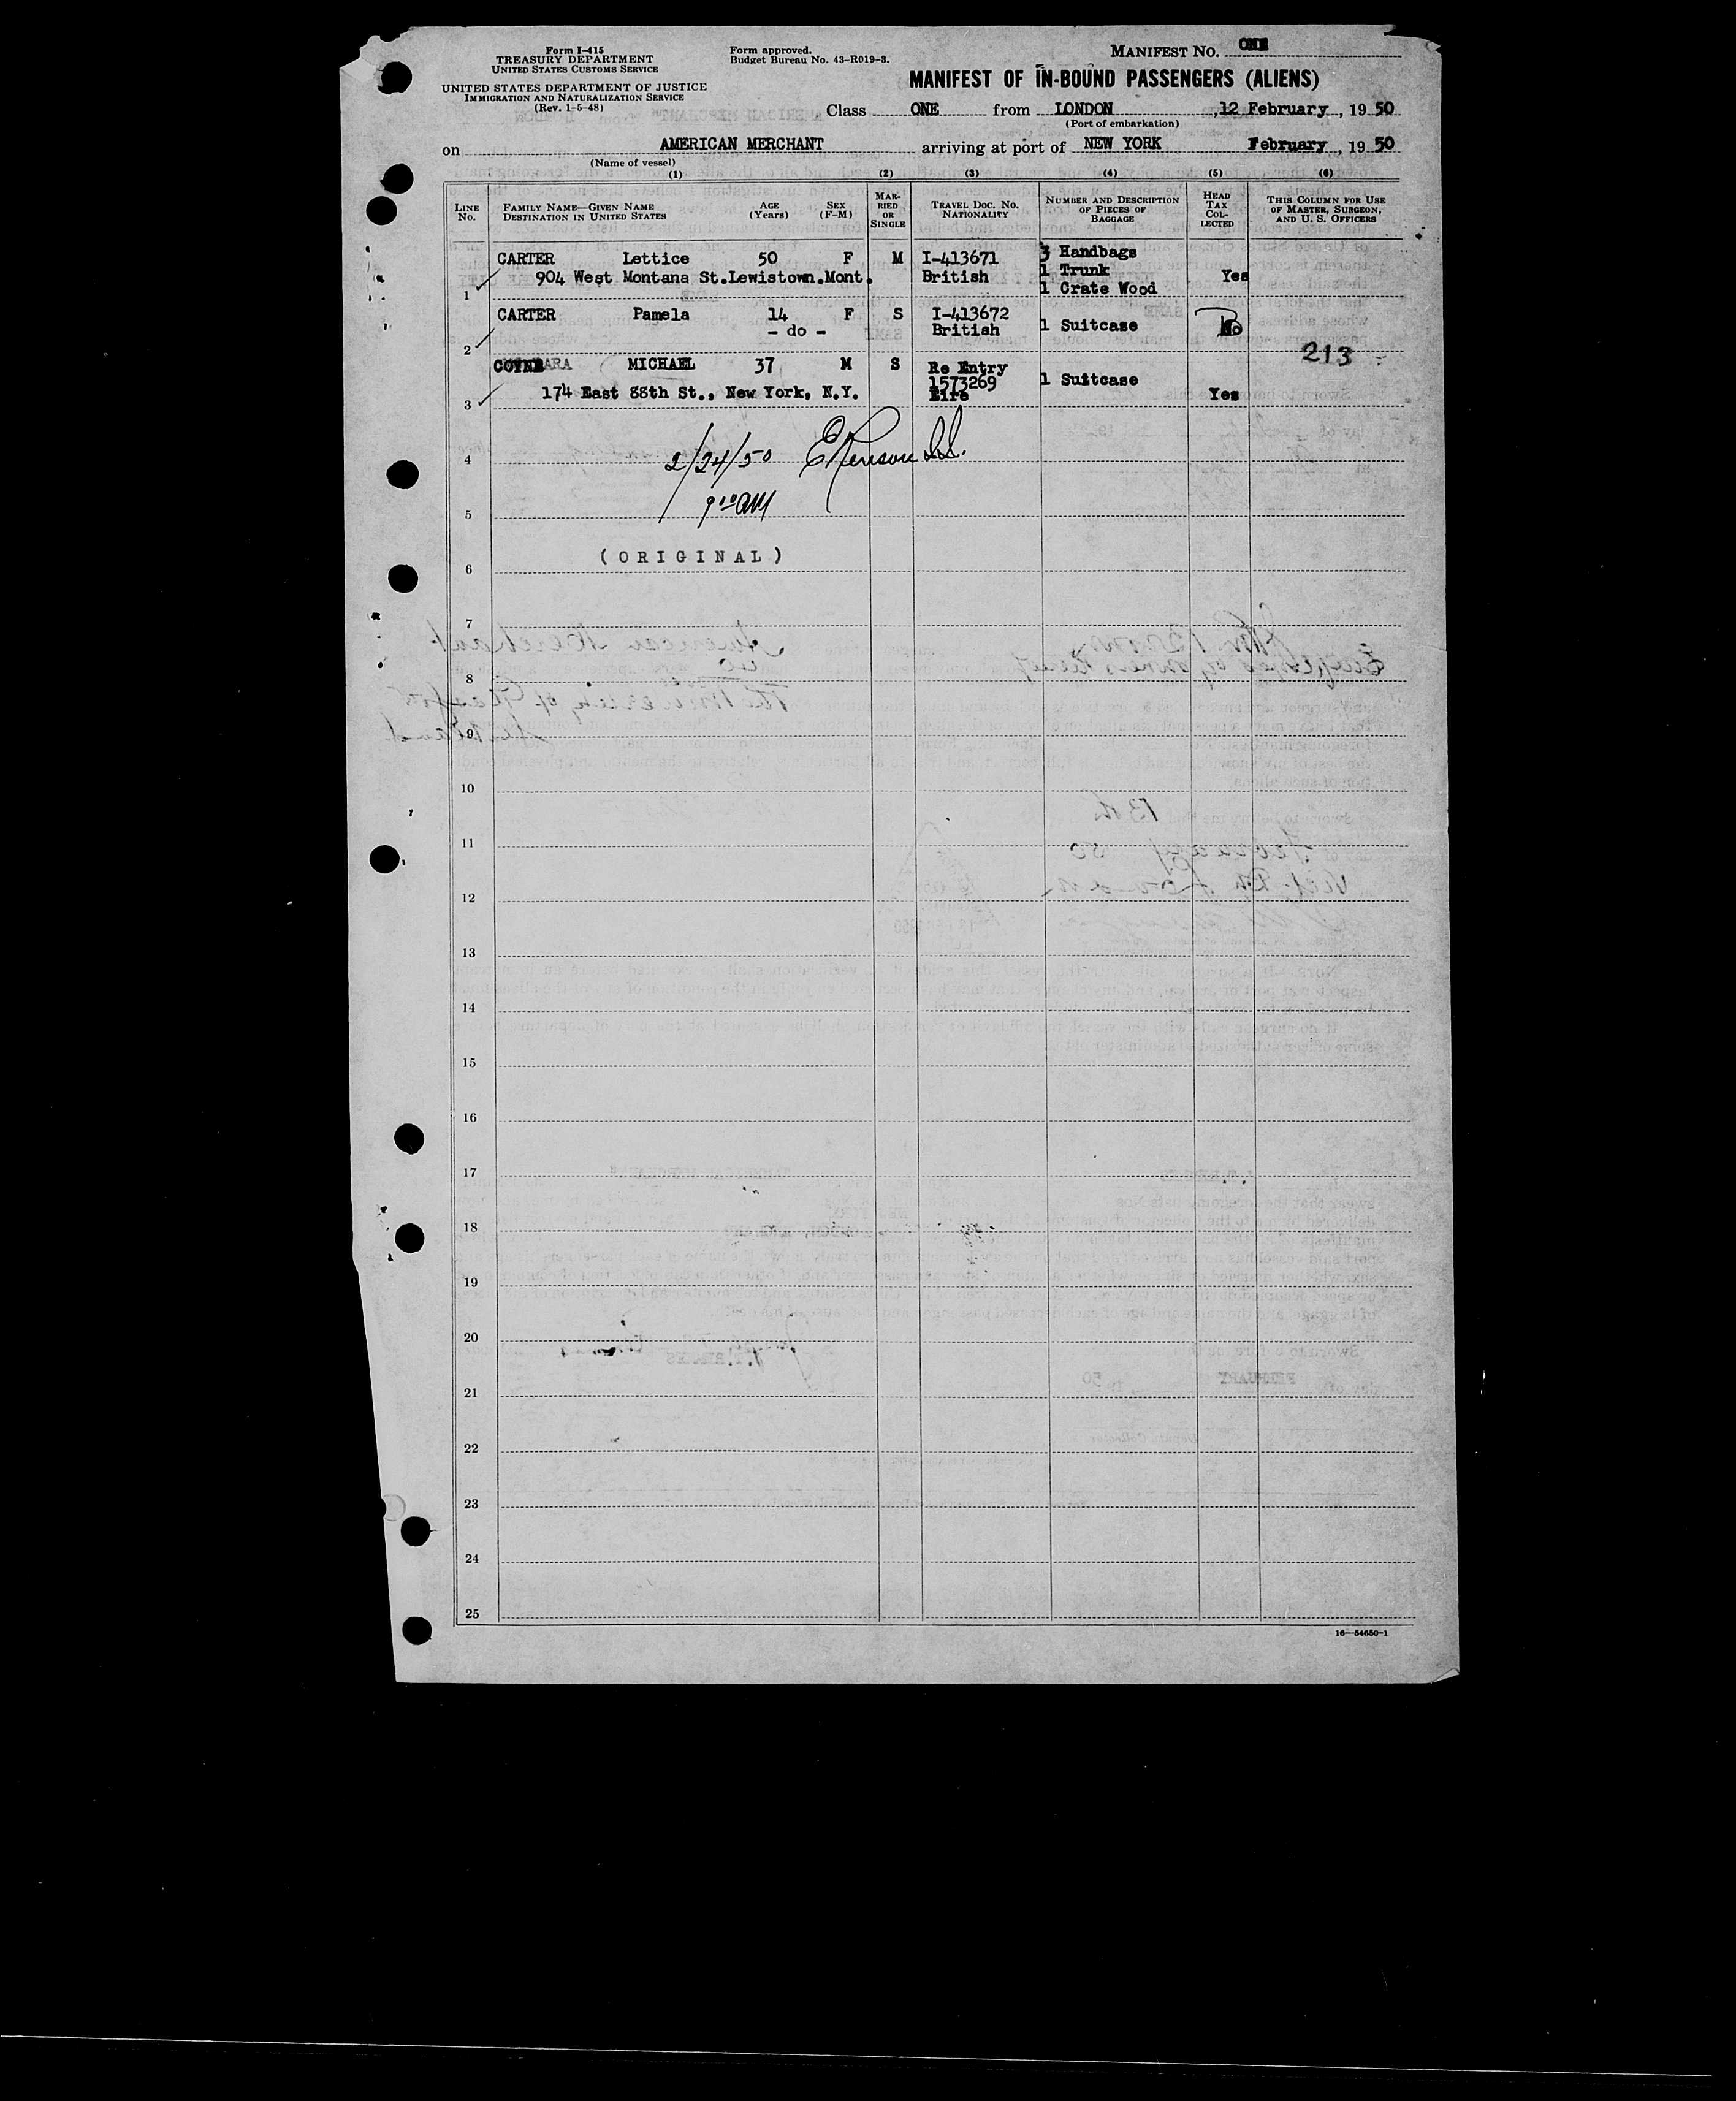 Form I-415
TREASURY DEPARTMENT
UNITED STATES CUSTOMS SERVICE
UNITED STATES DEPARTMENT OF JUSTICE
IMMIGRATION AND NATURALIZATION SERVICE
(Rev. 1-5-48)
Form approved.
Budget Bureau No. 43-R019-3.
MANIFEST NO. ONE
MANIFEST OF IN-BOUND PASSENGERS (ALIENS)
Class ONE from LONDON, 12 February, 1950
(Port of embarkation)
on AMERICAN MERCHANT arriving at port of NEW YORK February, 1950
(Name of vessel)
(1) (2) (3) (4) (5) (6)
LINE No.
FAMILY NAME—GIVEN NAME AGE (Years) SEX (F-M)
DESTINATION IN UNITED STATES
MARRIED OR SINGLE
TRAVEL DOC. NO. NATIONALITY
NUMBER AND DESCRIPTION OF PIECES OF BAGGAGE
HEAD TAX COLLECTED
THIS COLUMN FOR USE OF MASTER, SURGEON, AND U. S. OFFICERS
CARTER Lettice 50 F M I-413671 3 Handbags
904 West Montana St.Lewistown.Mont. British 1 Trunk Yes
1 1 Crate Wood
CARTER Pamela 14 F S I-413672
- do - British 1 Suitcase No
2
213
MICHAEL 37 M S Re Entry
1573269 1 Suitcase
174 East 88th St., New York, N.Y. Eire Yes
3
4 2/24/50
5
(ORIGINAL)
6
7
8
9
10
11
12
13
14
15
16
17
18
19
20
21
22
23
24
25
16—54650-1